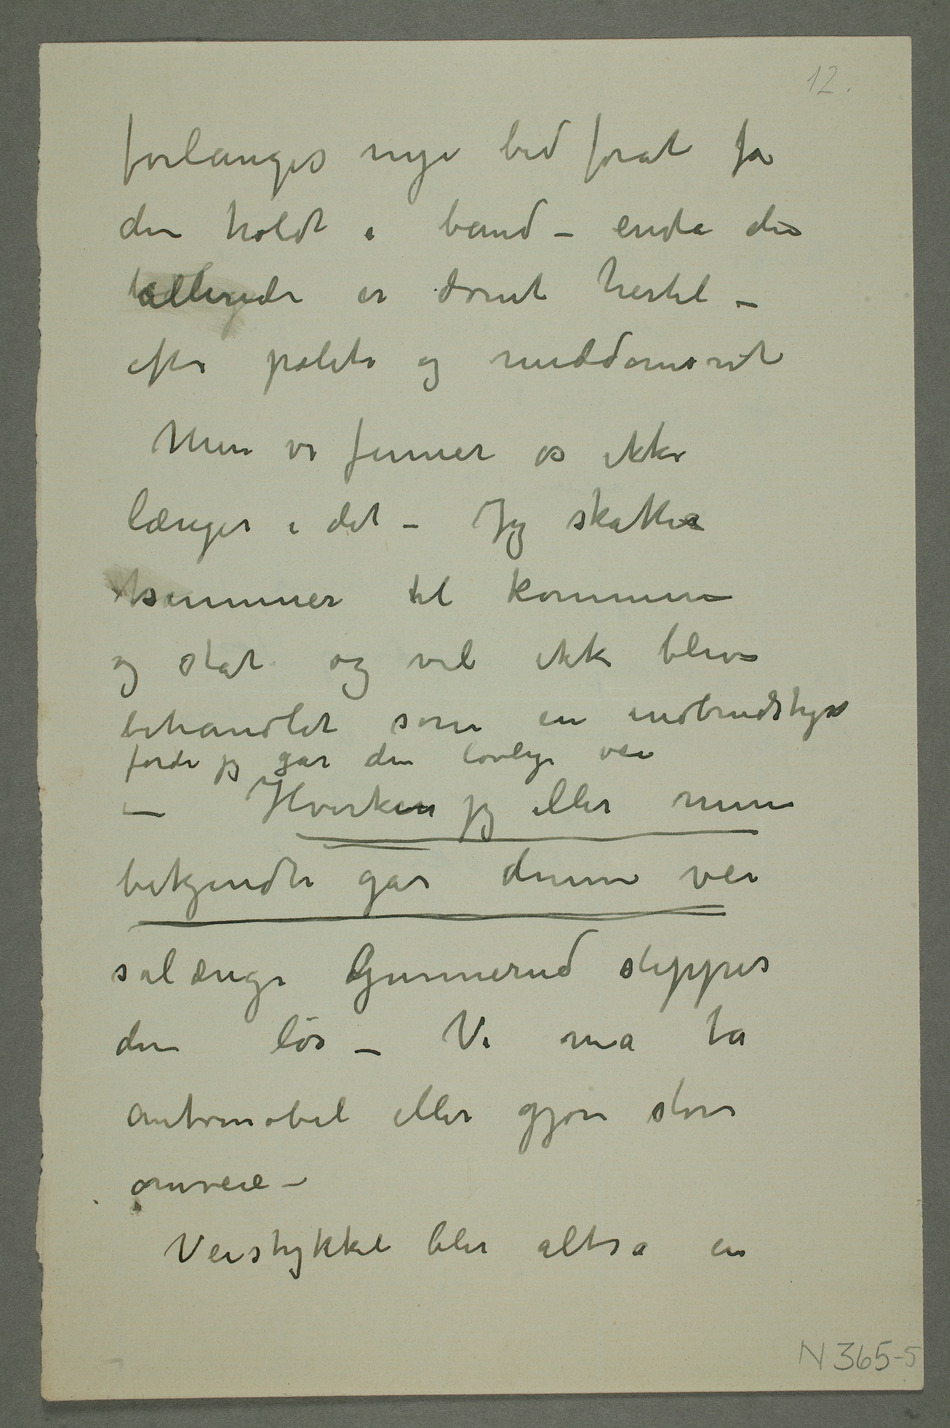 12.
forlanges nye bud forat få
den holdt i band – enda den
allerede er dømt hertil –
efter politi og meddomsret
Men vi finner os ikke
længer i det – Jeg skatter
summer til kommune
og stat og vil ikke blive
behandlet som en indbrudstyv
fordi jeg går den lovlige vei
– Hverken jeg eller mine
bekjendte går denne vei
sålænge Gunnerud slippes
den løs – Vi må ta
automobil eller gjøre store
omveie –
Veistykket blir altså en
N 365-5